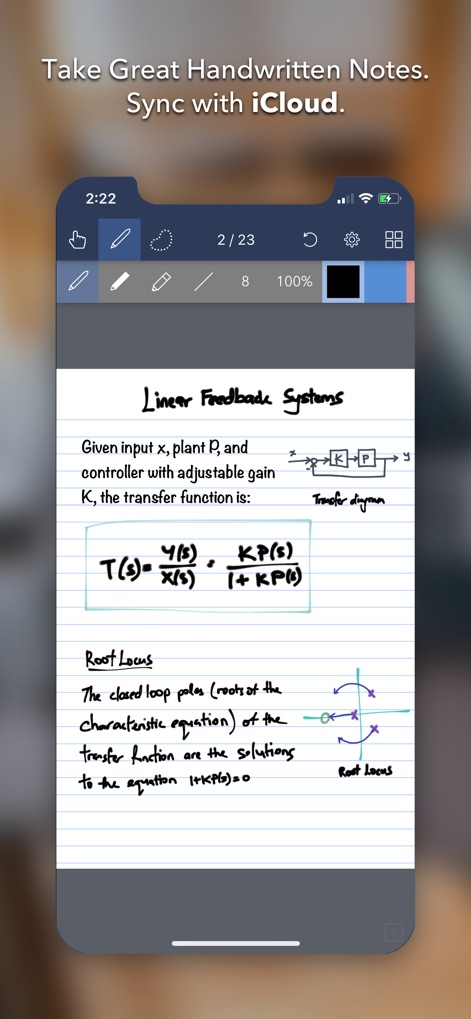 Take Great Handwritten Notes.
Sync with iCloud.
2:22
2 / 23
8
100%
Linear Feedback Systems
Given input x, plant P, and
controller with adjustable gain
K, the transfer function is:
x K P y
Transfer diagram
T(s) = Y(s)/X(s) = KP(s)/1 + KP(s)
Root Locus
The closed loop poles (roots of the
characteristic equation) of the
transfer function are the solutions
to the equation 1+KP(s)=0
Root Locus